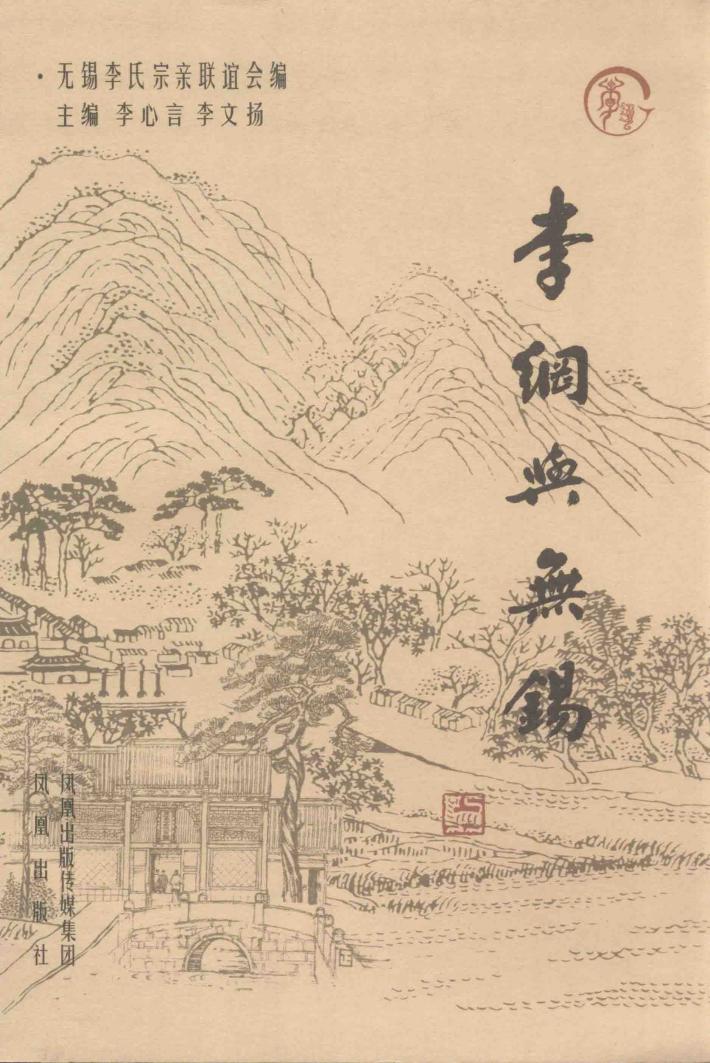 ·无锡李氏宗亲联谊会编
主编 李心言 李文扬
李綱與無錫
凤凰出版传媒集团
凤凰出版社